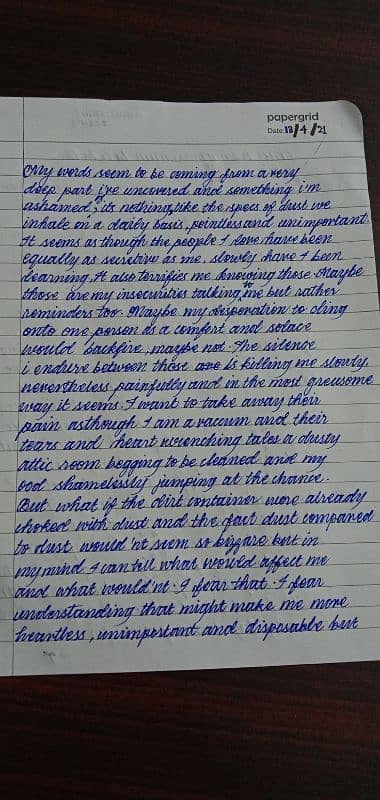 papergrid
Date: 13/4/21
My words seem to be coming from a very
deep part i've uncovered and something i'm
ashamed; its nothing like the specs of dust we
inhale on a daily basis, pointless and unimportant.
It seems as though the people I love have been
equally as secretive as me, slowly have I been
learning. It also terrifies me knowing those. Maybe
those are my insecurities talking to me but rather
reminders too. Maybe my desperation to cling
onto one person as a comfort and solace
would backfire, maybe not. The silence
i endure between those are is killing me slowly,
nevertheless painfully and in the most gruesome
way it seems. I want to take away their
pain asthough I am a vaccum and their
tears and heart wrenching tales a dusty
attic room begging to be cleaned and my
bod shamelessly jumping at the chance.
But what if the dirt container were already
choked with dust and the fact dust compared
to dust would'nt seem so bizzare but in
my mind I can tell what would affect me
and what would'nt. I fear that. I fear
understanding that might make me more
heartless, unimportant and disposable but